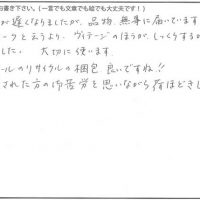 お書き下さい。(一言でも文章でも絵でも大丈夫です!)
が遅くなりましたが、品物、無事に届いています
ークと云うより、ヴィテージのほうが、しっくりするか
した。 大切に使います。
ールのリサイクルの梱包 良いですね!!
された方の御苦労を思いながら荷ほどきし